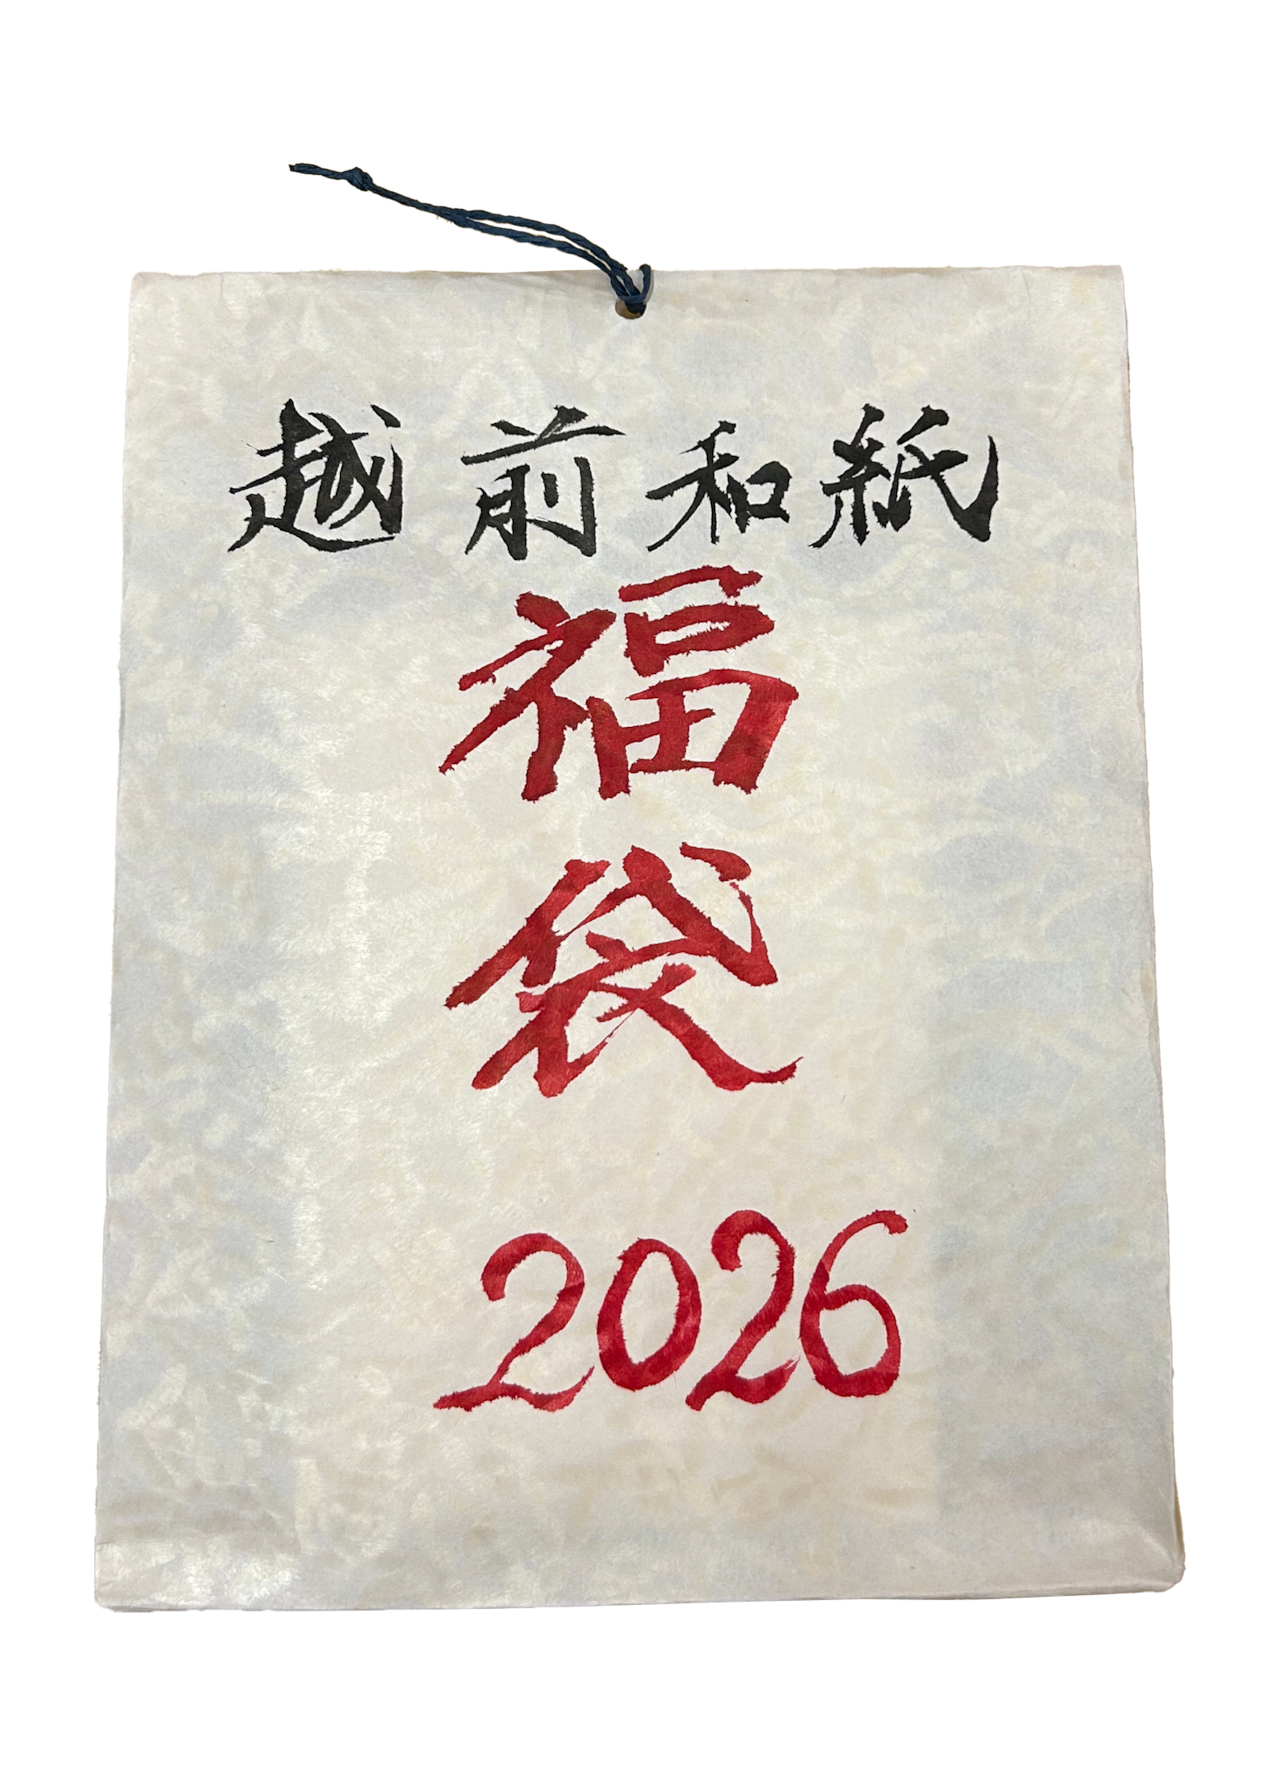 越前和紙
福
袋
2026